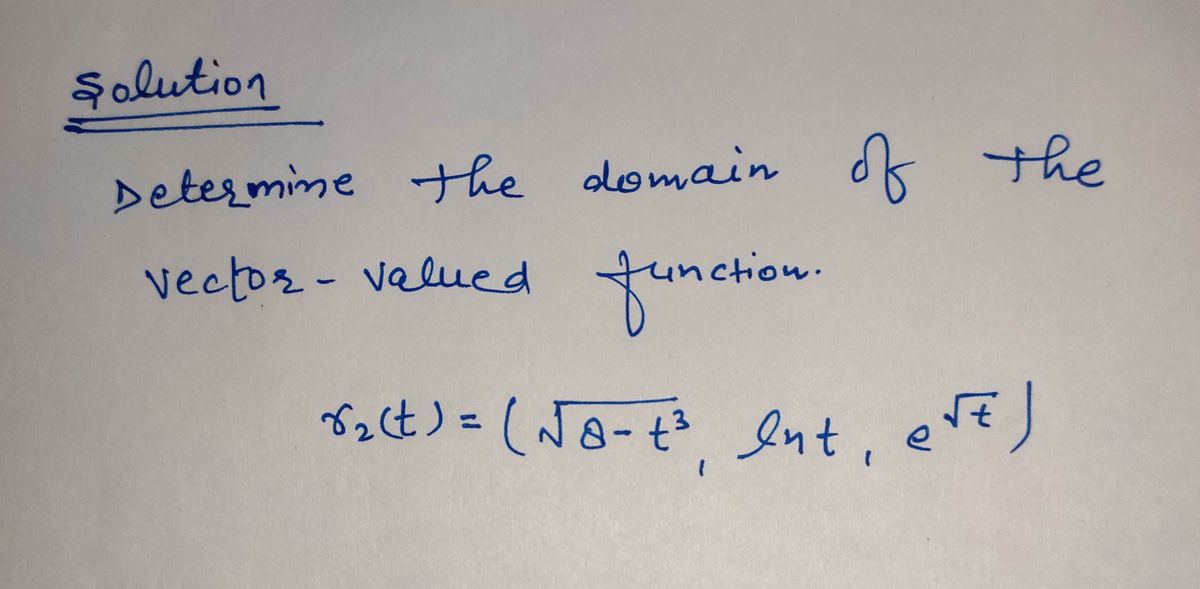 Solution
Determine the domain of the
vector-valued function.
r₂(t) = (√8-t³, lnt, e^√t)